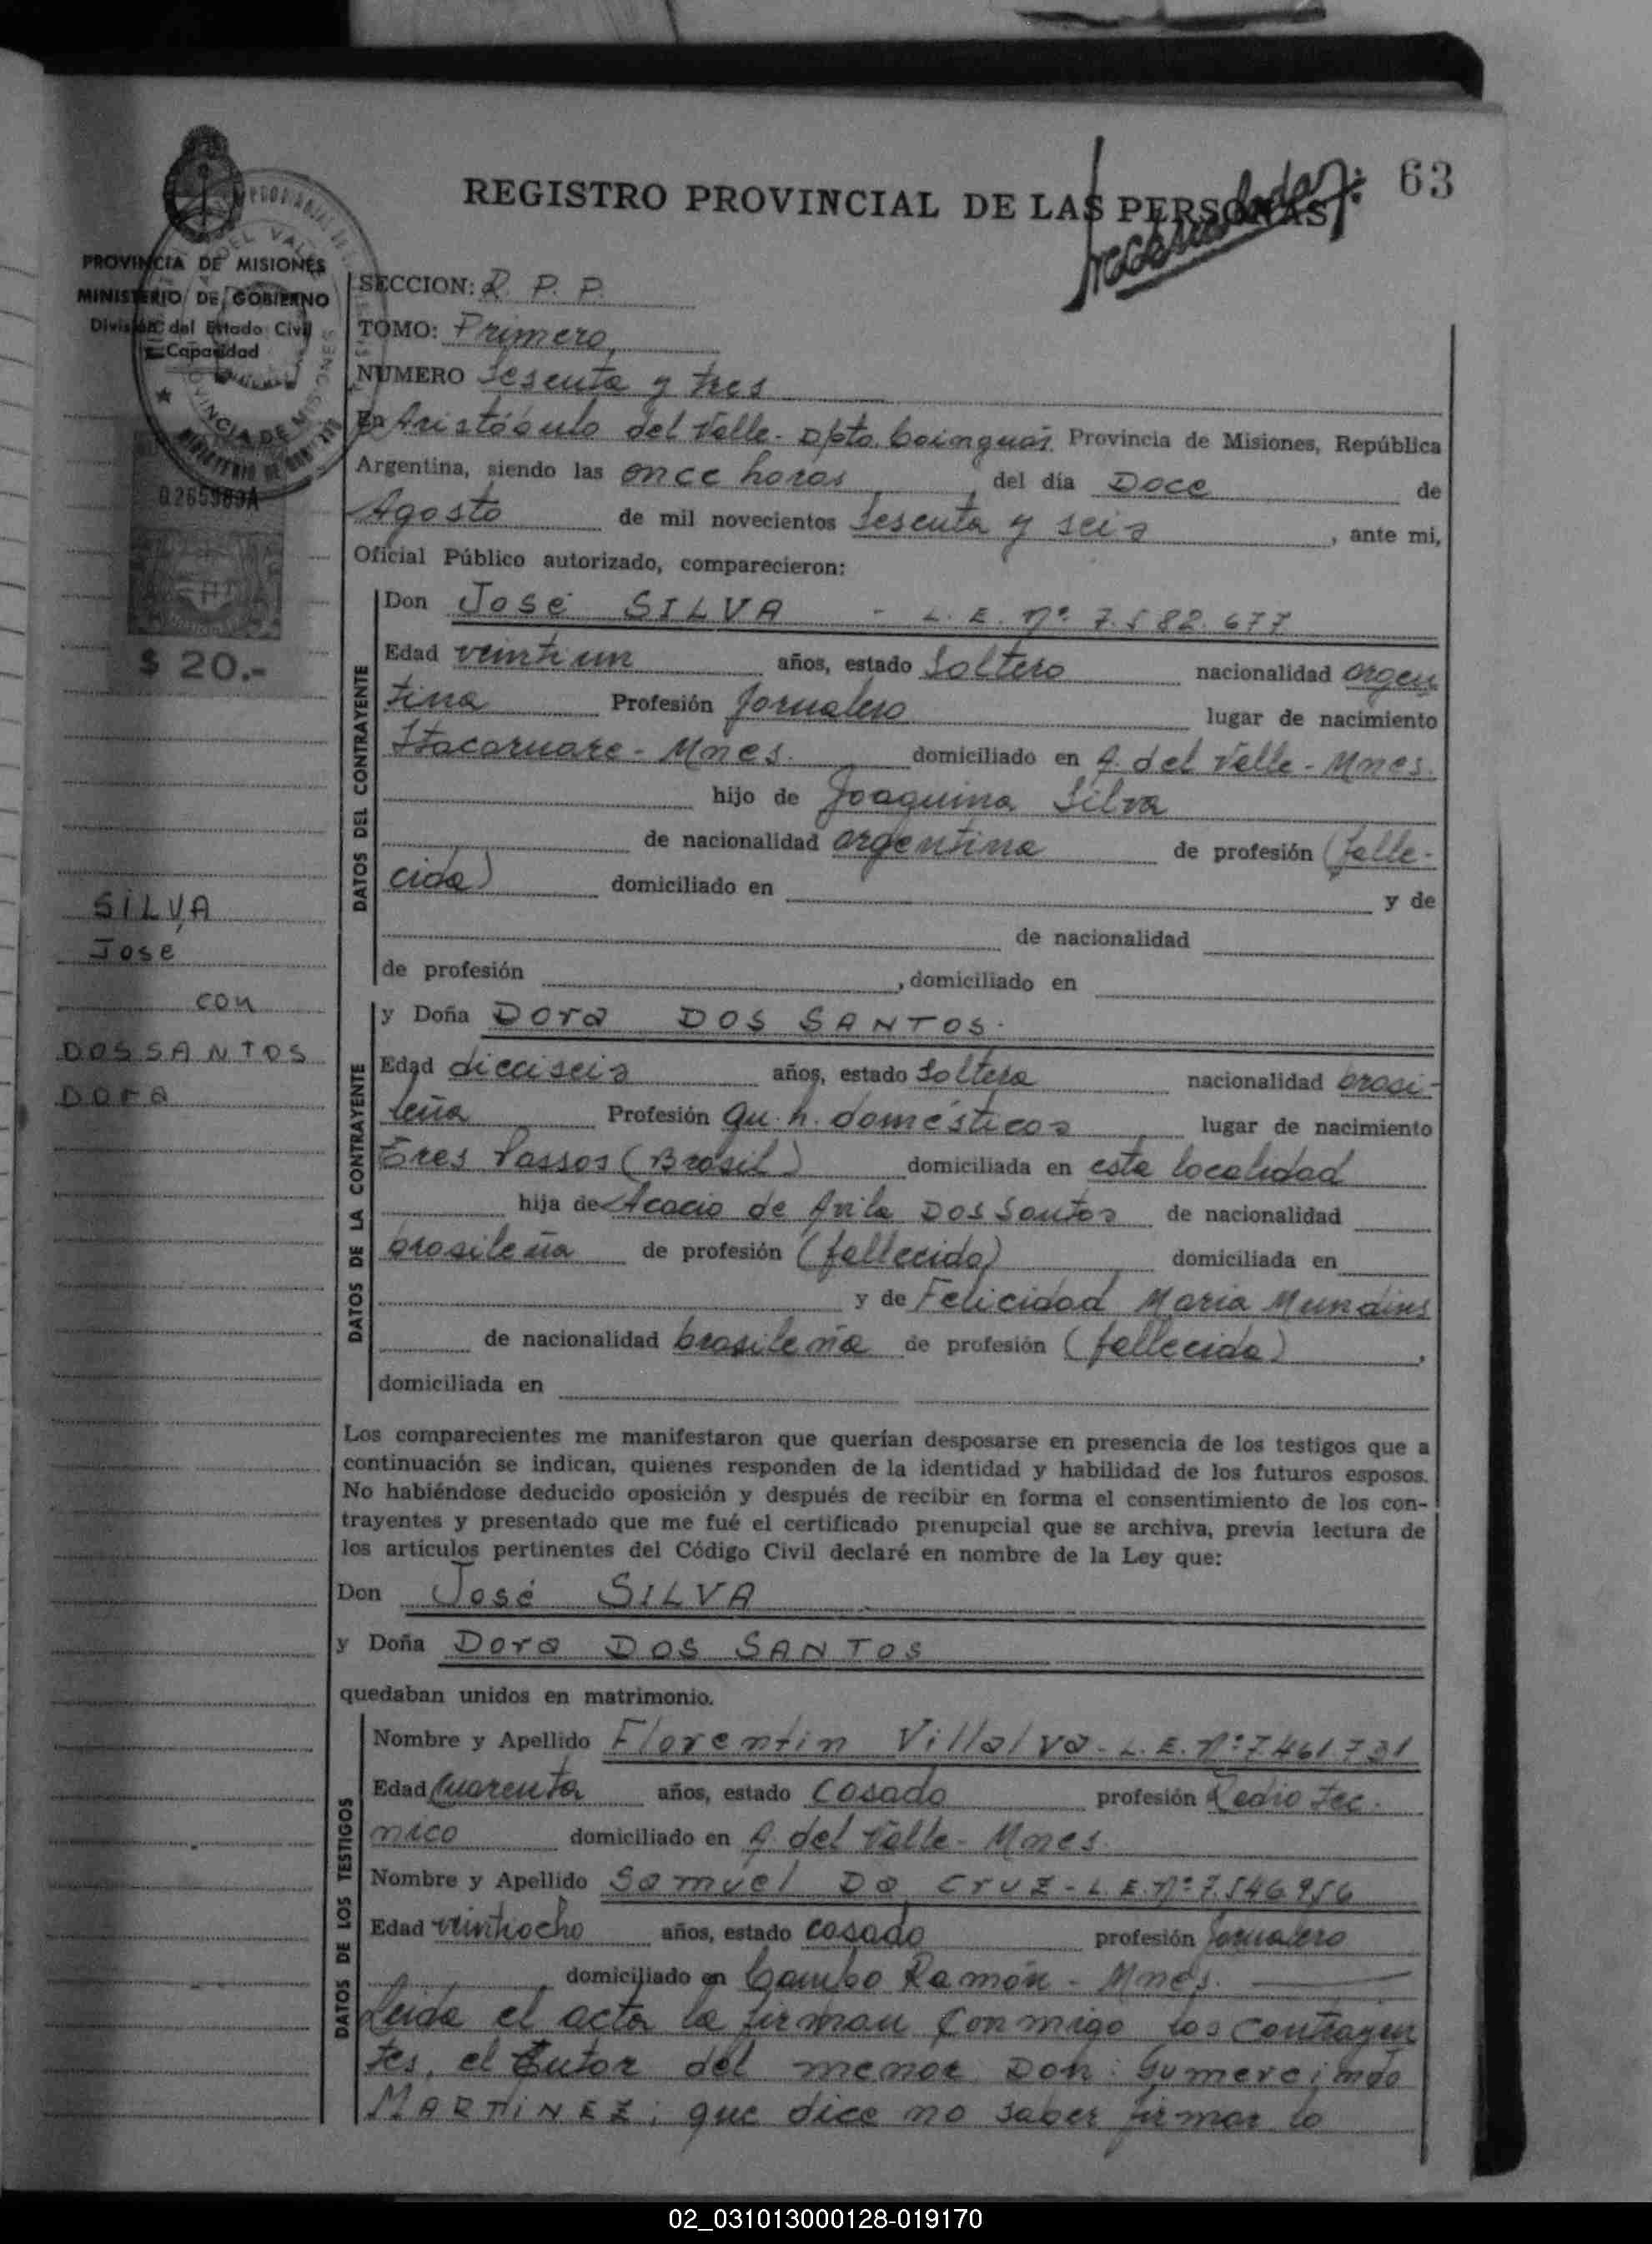 63
REGISTRO PROVINCIAL DE LAS PERSONAS
PROVINCIA DE MISIONES
MINISTERIO DE GOBIERNO
División del Estado Civil
y Capacidad
0265989A
$ 20.-
SILVA
Jose
con
DOS SANTOS
DORA
SECCION: R. P. P.
TOMO: Primero
NUMERO Sesenta y tres
En Aristóbulo del Valle - Dpto. Cainguás Provincia de Misiones, República
Argentina, siendo las once horas del día Doce de
Agosto de mil novecientos Sesenta y seis, ante mi,
Oficial Público autorizado, comparecieron:
DATOS DEL CONTRAYENTE
Don José SILVA - L. E. nº 7.582.677
Edad veintiun años, estado Soltero nacionalidad argen
tina Profesión Jornalero lugar de nacimiento
Itacaruare - Mnes. domiciliado en A. del Valle - Mnes.
hijo de Joaquina Silva
de nacionalidad argentina de profesión (falle-
cida) domiciliado en y de
de nacionalidad
de profesión , domiciliado en
DATOS DE LA CONTRAYENTE
y Doña Dora DOS SANTOS.
Edad dieciseis años, estado Soltera nacionalidad brasi-
leña Profesión qu. h. domésticos lugar de nacimiento
Tres Passos (Brasil) domiciliada en esta localidad
hija de Acacio de Avila Dos Santos de nacionalidad
brasileña de profesión (fallecido) domiciliada en
y de Felicidad Maria
de nacionalidad brasileña de profesión (fallecida),
domiciliada en
Los comparecientes me manifestaron que querían desposarse en presencia de los testigos que a
continuación se indican, quienes responden de la identidad y habilidad de los futuros esposos.
No habiéndose deducido oposición y después de recibir en forma el consentimiento de los con-
trayentes y presentado que me fué el certificado prenupcial que se archiva, previa lectura de
los artículos pertinentes del Código Civil declaré en nombre de la Ley que:
Don José SILVA
y Doña Dora DOS SANTOS
quedaban unidos en matrimonio.
DATOS DE LOS TESTIGOS
Nombre y Apellido Florentin Villalva - L. E. nº 7.461.731
Edad Cuarenta años, estado Casado profesión Radio Tec-
nico domiciliado en A. del Valle - Mnes.
Nombre y Apellido Samuel Da Cruz - L. E. nº 7.546.956
Edad veintiocho años, estado casado profesión Jornalero
domiciliado en Cambo Ramón - Mnes.
Leida el acta la firman conmigo los contrayen
tes, el tutor del menor Don: Gumercindo
MARTINEZ; que dice no saber firmar lo
02_031013000128-019170